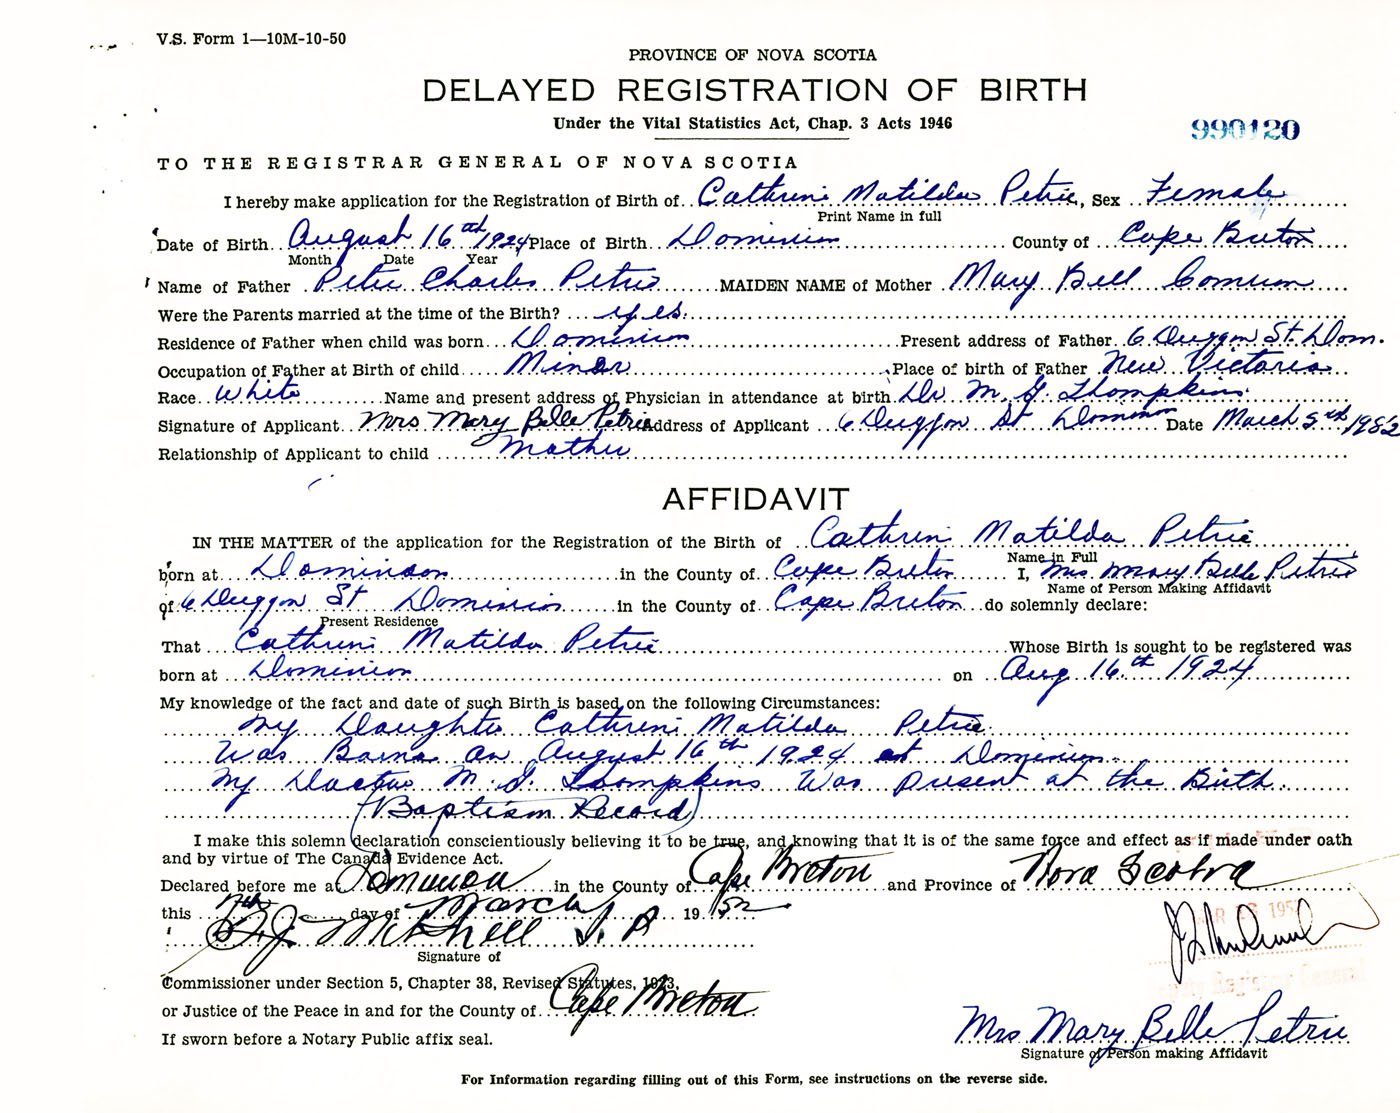 V.S. Form 1—10M-10-50
PROVINCE OF NOVA SCOTIA
DELAYED REGISTRATION OF BIRTH
Under the Vital Statistics Act, Chap. 3 Acts 1946
990120
TO THE REGISTRAR GENERAL OF NOVA SCOTIA
I hereby make application for the Registration of Birth of Cathrini Matilda Petrie, Sex Female
Print Name in full
Date of Birth August 16th 1924 Place of Birth Dominion County of Cape Breton
Month Date Year
Name of Father Peter Charles Petrie MAIDEN NAME of Mother Mary Bell
Were the Parents married at the time of the Birth? yes.
Residence of Father when child was born Dominion Present address of Father 6 Duggan St. Dom.
Occupation of Father at Birth of child Miner Place of birth of Father New Victoria
Race White Name and present address of Physician in attendance at birth Dr M. G. Thompkins
Signature of Applicant Mrs Mary Belle Petrie Address of Applicant 6 Duggan St Dominion Date March 5th, 1952
Relationship of Applicant to child Mother
AFFIDAVIT
IN THE MATTER of the application for the Registration of the Birth of Cathrini Matilda Petrie
Name in Full
born at Dominion in the County of Cape Breton I, Mrs Mary Belle Petrie
Name of Person Making Affidavit
of 6 Duggan St Dominion in the County of Cape Breton do solemnly declare:
Present Residence
That Cathrini Matilda Petrie Whose Birth is sought to be registered was
born at Dominion on Aug 16th 1924
My knowledge of the fact and date of such Birth is based on the following Circumstances:
My Daughter Cathrini Matilda Petrie
Was Borne on August 16th 1924 at Dominion
My Doctor M. G. Thompkins Was present at the Birth.
(Baptism Record)
I make this solemn declaration conscientiously believing it to be true, and knowing that it is of the same force and effect as if made under oath
and by virtue of The Canada Evidence Act.
Declared before me at Dominion in the County of Cape Breton and Province of Nova Scotia
this day of March 1952
Mitchell J. P.
Signature of
MAR 26 1952
Commissioner under Section 5, Chapter 38, Revised Statutes, 1923,
Deputy Registrar General
or Justice of the Peace in and for the County of Cape Breton
Mrs Mary Belle Petrie
If sworn before a Notary Public affix seal.
Signature of Person making Affidavit
For Information regarding filling out of this Form, see instructions on the reverse side.